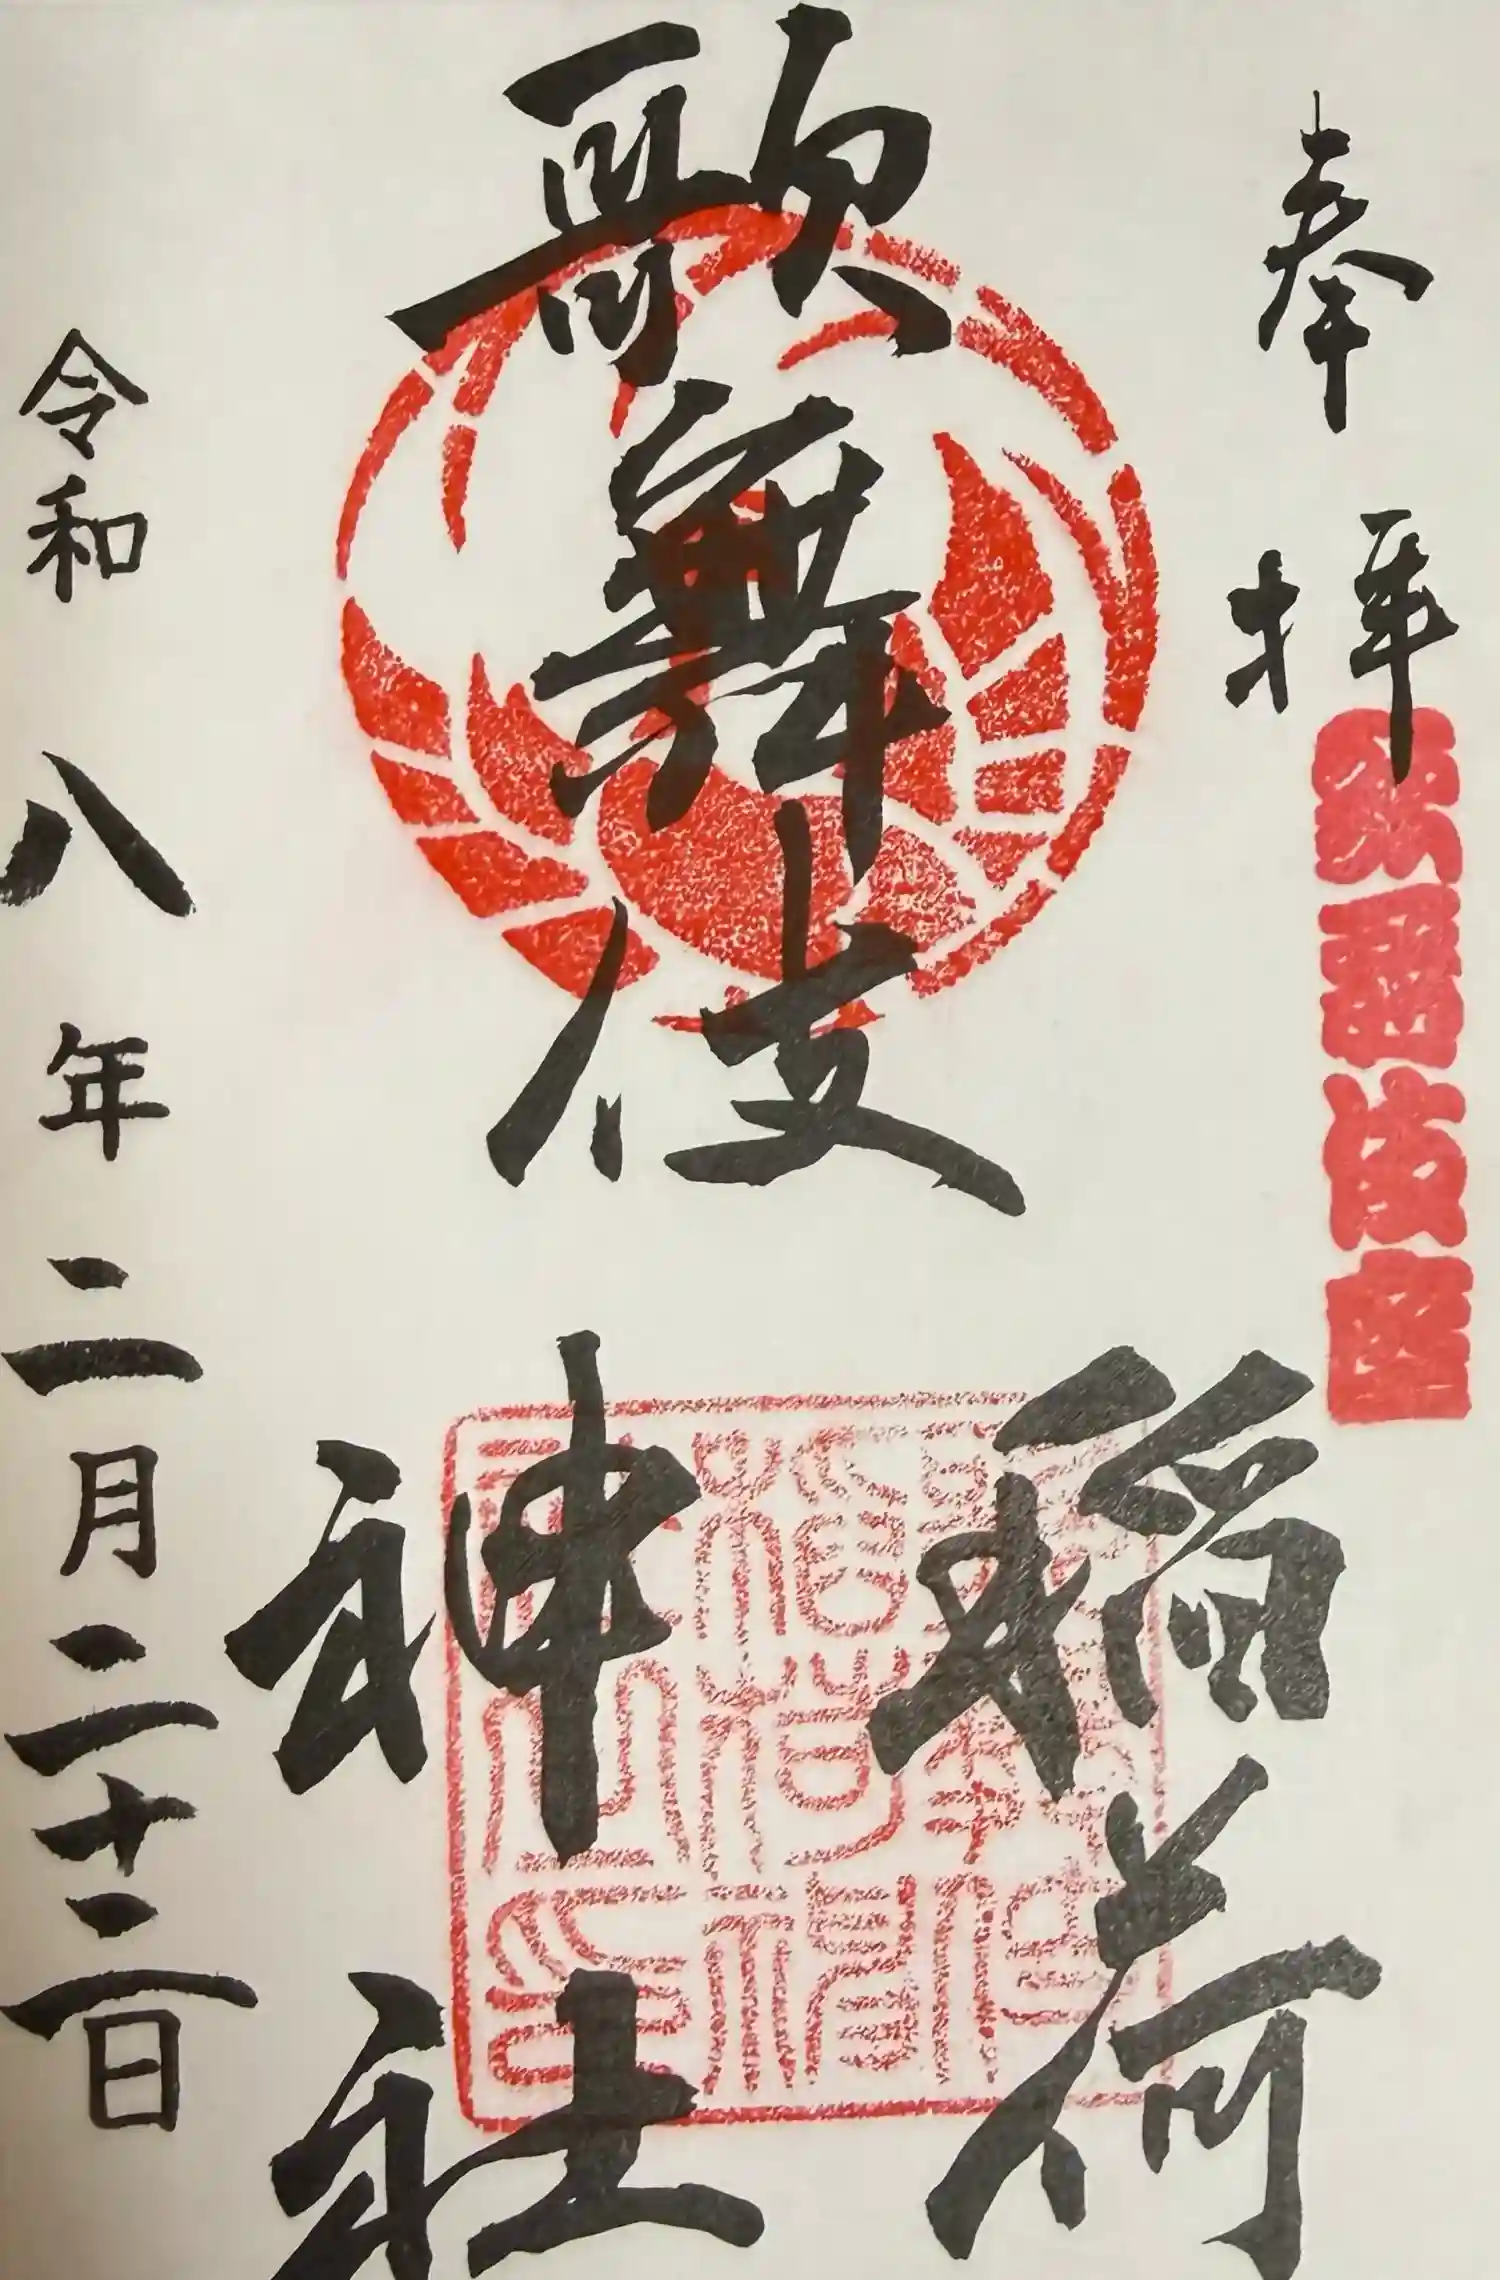 奉拝
歌舞伎座
歌舞伎
稲荷
神社
令和八年二月二十二日